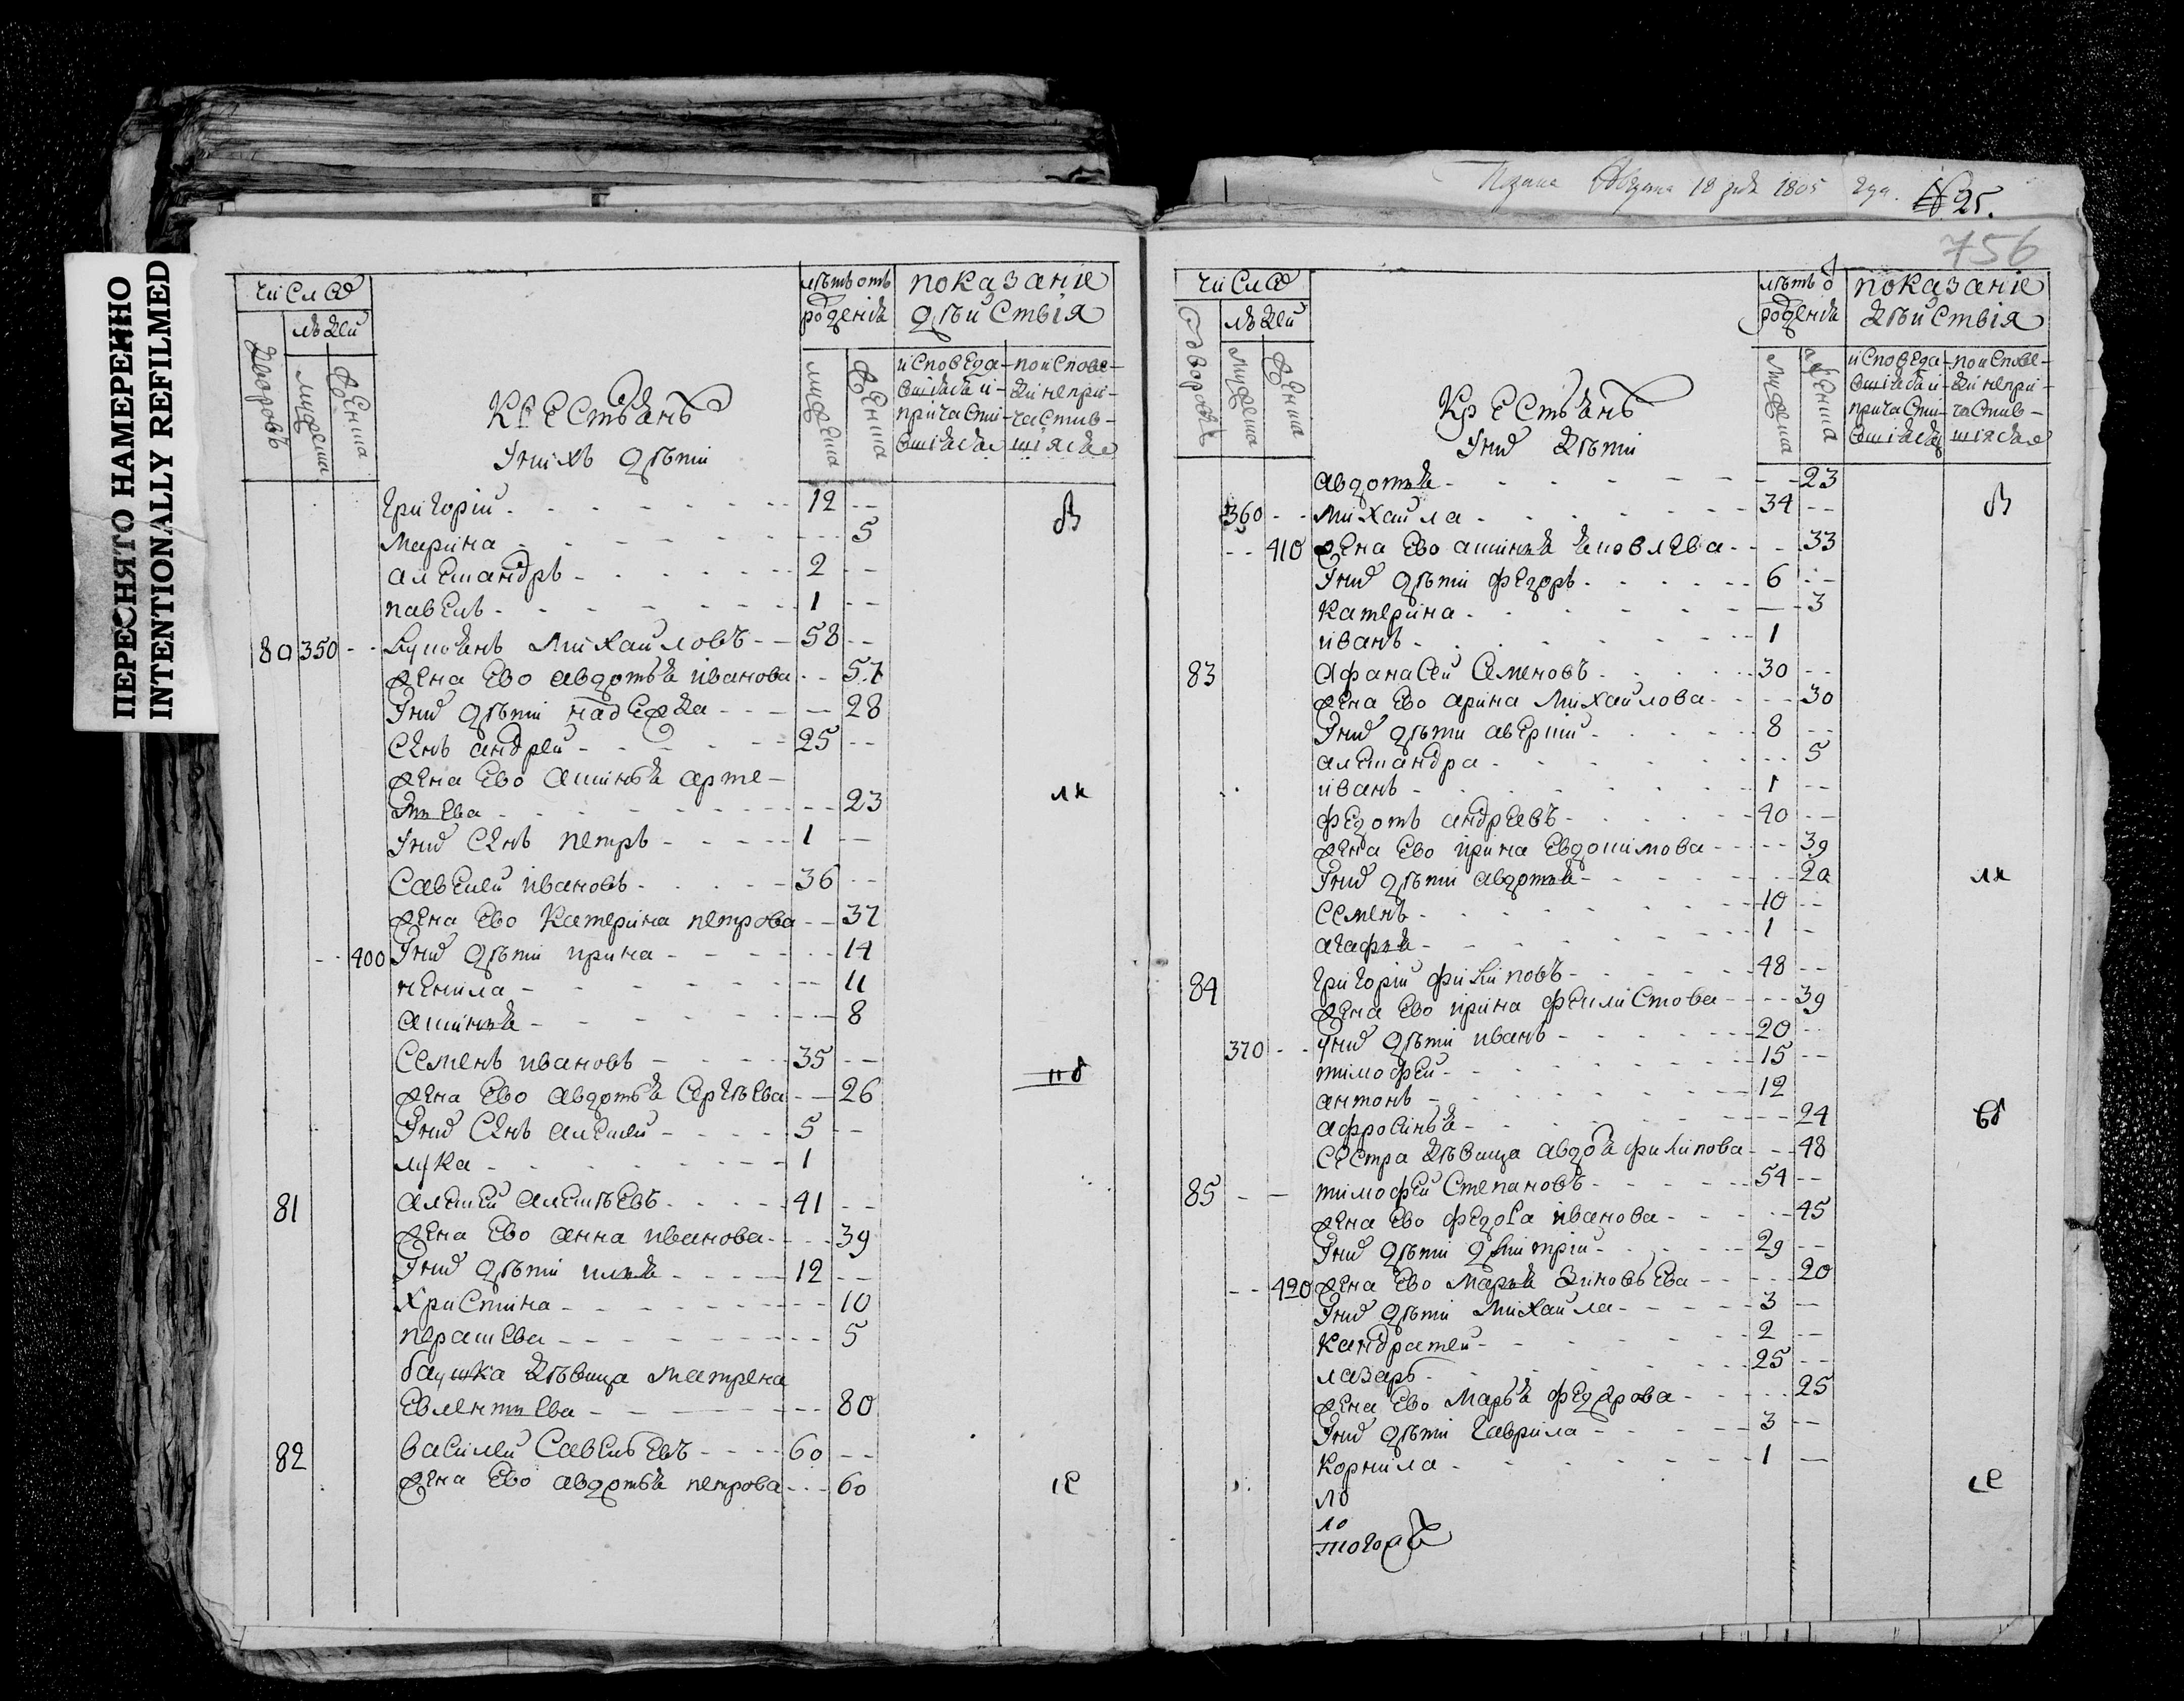 ПЕРЕСНЯТО НАМЕРЕННО
INTENTIONALLY REFILMED
числа
людей
дворовъ
мужеска
женска
крестьянъ
и нихъ дѣти
лѣтъ отъ
рожденія
мужеска
женска
показаніе
дѣйствія
исповеда-
вшіяся и
причасти-
вшіяся
по испове-
ди не при-
частив-
шіяся
григорій 12
марина 5
александръ 2
павелъ 1
80 350 лукьянъ михайловъ 58
жена ево авдотья иванова 57
у них дѣти надежда 28
сынъ андрей 25
жена ево аксинья арте-
мьева 23
у них сынъ петръ 1
савелей ивановъ 36
жена ево катерина петрова 37
400 у них дѣти ирина 14
ненила 11
аксинья 8
семенъ ивановъ 35
жена ево авдотья сергѣева 26
у них сынъ алексей 5
лука 1
81 алексей алексѣевъ 41
жена ево анна иванова 39
у них дѣти илья 12
христина 10
парасева 5
баушка дѣвица матрена
евлентьева 80
82 василей савельевъ 60
жена ево авдотья петрова 60
1805
№ 25.
756
числа
дворовъ
людей
мужеска
женска
крестьянъ
у них дѣти
лѣтъ о
рожденія
мужеска
женска
показаніе
дѣйствія
исповеда-
вшіяся и
причасти-
вшіяся
по испове-
ди не при-
частив-
шіяся
авдотья 23
360 михайла 34
410 жена ево аксинья яковлева 33
у них дѣти федоръ 6
катерина 3
иванъ 1
83 афанасей семеновъ 30
жена ево арина михайлова 30
у них дѣти аверкий 8
александра 5
иванъ 1
федотъ андреевъ 40
жена ево ирина евдокимова 39
у них дѣти авдотья 20
семенъ 10
агафья 1
84 григорій филиповъ 48
жена ево ирина феклистова 39
370 у них дѣти иванъ 20
тимофей 15
антонъ 12
афросинья 24
сестра дѣвица авдотья филипова 48
85 тимофей степановъ 54
жена ево федосья иванова 45
у них дѣти дмитрій 29
420 жена ево марья зиновьева 20
у них дѣти михайла 3
кандратей 2
лазарь 25
жена ево марья федорова 25
у них дѣти гаврила 3
корнила 1